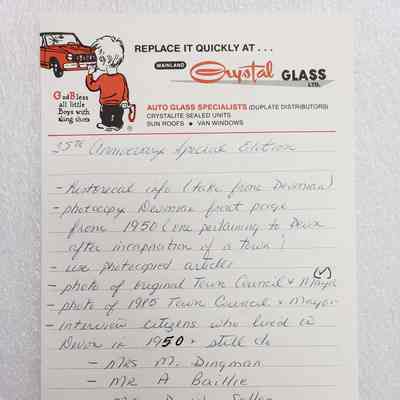 REPLACE IT QUICKLY AT . . .
MAINLAND Crystal GLASS LTD.
God Bless
all little
Boys with
sling shots
AUTO GLASS SPECIALISTS (DUPLATE DISTRIBUTORS)
CRYSTALITE SEALED UNITS
SUN ROOFS • VAN WINDOWS
35th Anniversary Special Edition
- historical info (take from Devonian)
- photocopy Devonian front page
from 1950 (one pertaining to Devon
after incorporation of a town)
- use photocopied articles
- photo of original Town Council & Mayor (✓)
- photo of 1985 Town Council & Mayor
- interview citizens who lived in
Devon in 1950 & still do
- Mrs M. Dingman
- Mr A Baillie